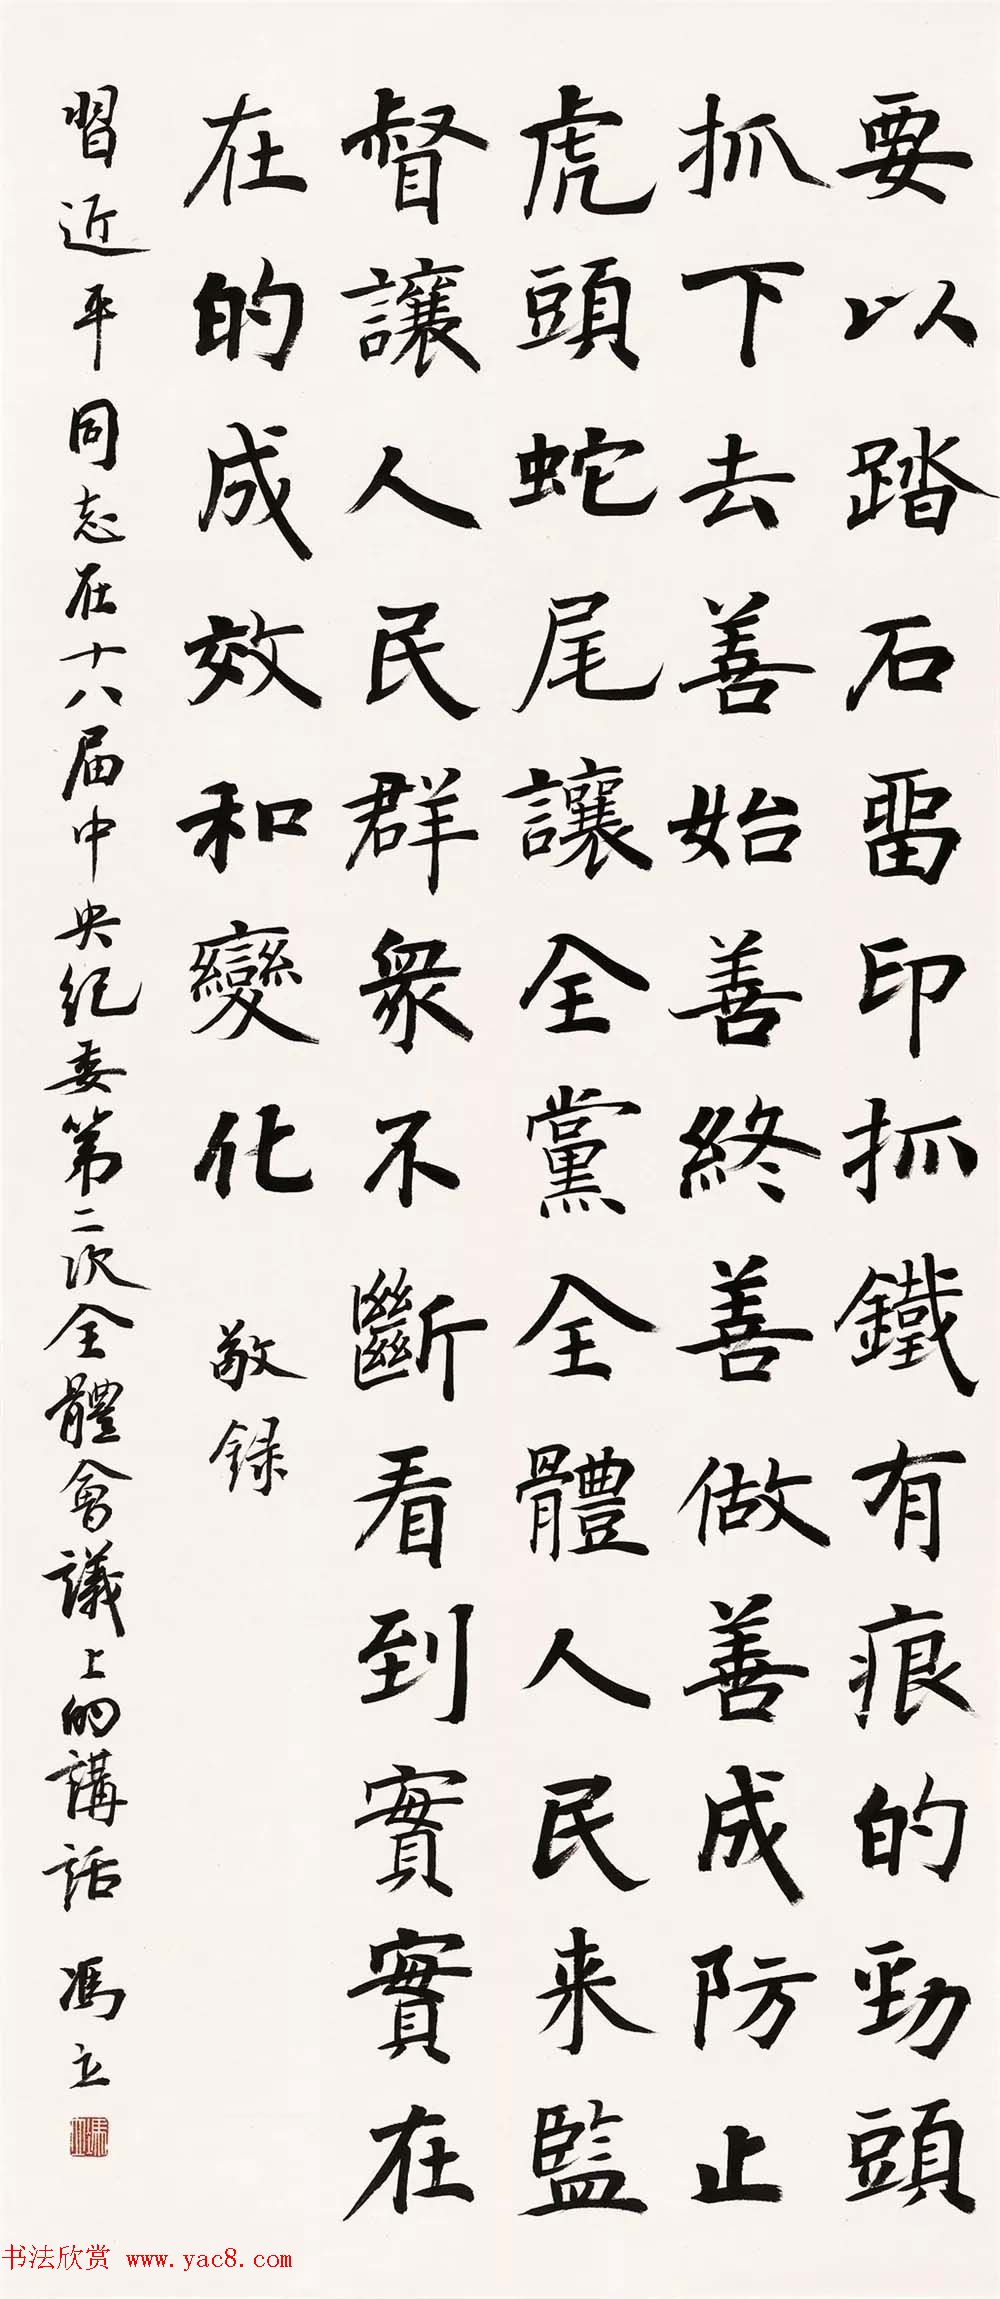 要以踏石留印抓鐵有痕的勁頭
抓下去善始善終善做善成防止
虎頭蛇尾讓全黨全體人民来監
督讓人民群衆不斷看到實實在
在的成效和變化 敬録
習近平同志在十八届中央纪委第二次全體會議上的講話 馮立
书法欣赏 www.yac8.com